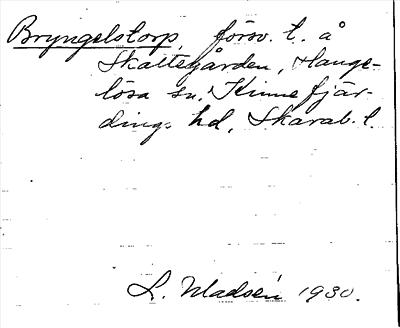 Bryngelstorp, försv. t. å
Skattegården, Hange-
lösa sn, Kinnefjär-
dings hd, Skarab. l.
L. Madsén 1930.